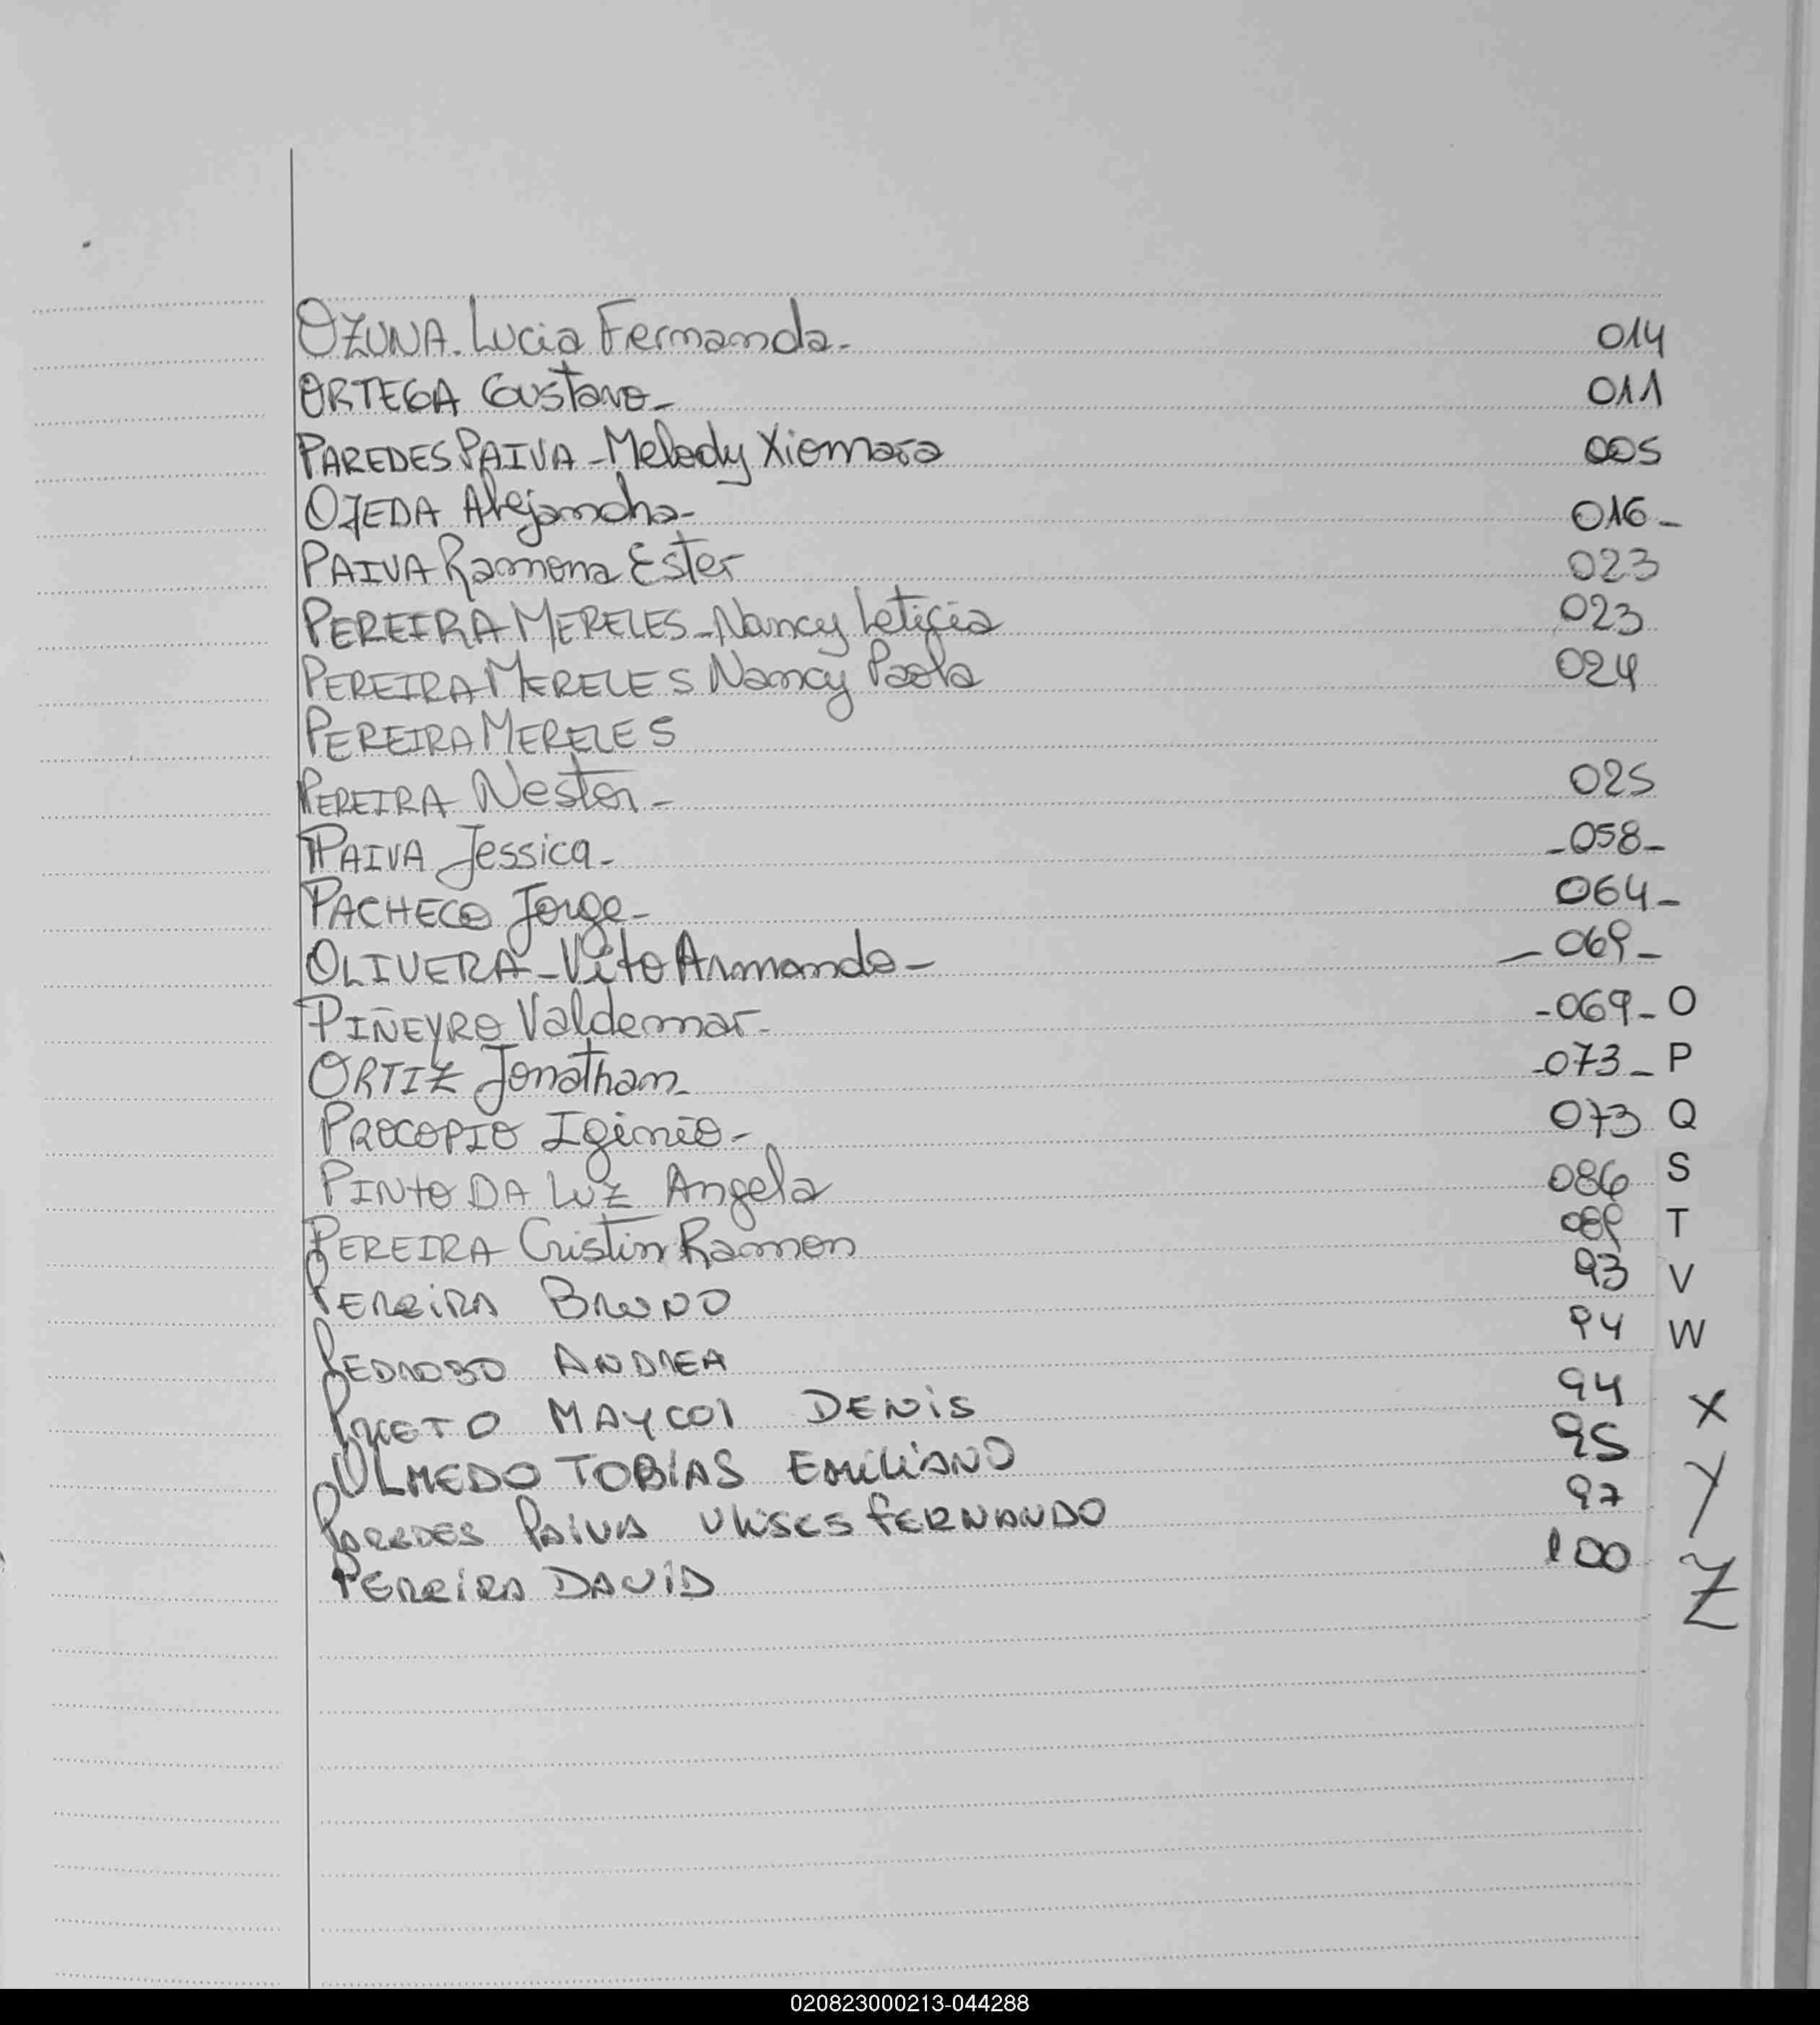 OZUNA. Lucia Fernanda- 014
ORTEGA Gustavo- 011
PAREDES PAIVA - Melody Xiomara 005
OJEDA Alejandra- 016-
PAIVA Ramona Ester 023
PEREIRA MERELES - Nancy Leticia 023
PEREIRA MERELES Nancy Paola 024
PEREIRA MERELES
PEREIRA Nestor- 025
PAIVA Jessica- -058-
PACHECO Jorge- 064-
OLIVERA - Vito Armando- -069-
PIÑEYRO Valdemar- -069- O
ORTIZ Jonathan- -073- P
PROCOPIO Iginio- 073 Q
PINTO DA LUZ Angela 086 S
PEREIRA Cristin Ramon 089 T
PEREIRA BRUNO 93 V
PEDROSO ANDREA 94 W
MAYCOL DENIS 94 X
OLMEDO TOBIAS EMILIANO 95
PAREDES PAIVA ULISES FERNANDO 97 Y
PEREIRA DAVID 100 Z
020823000213-044288